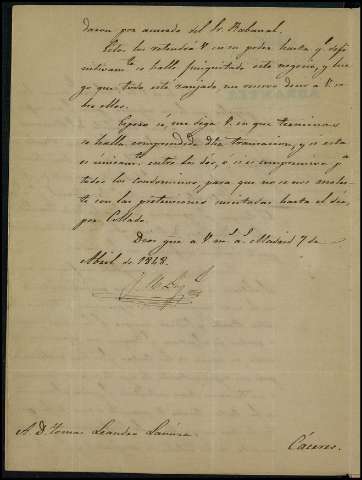 daron por acuerdo del Sr. Rabanal.
Estos los retendrá V. en su poder hasta q.e defi-
nitivam.te se halle finiquitado este negocio, y lue-
go que todo este zanjado un nuevo deseo a V. so-
bre ellos.
Espero se me diga V. en que terminos
se halla comprendida dha transacion, y si esta
es unicam.te entre los dos, o si es comprensiva p.a
todos los condominos, para que no se nos moles-
te con las pretensiones incitadas hasta el dia
por Collado.
Dios gue a V. m.s a.s Madrid 7 de
Abril de 1848.
A. D. Tomas Leandro
Cáceres.